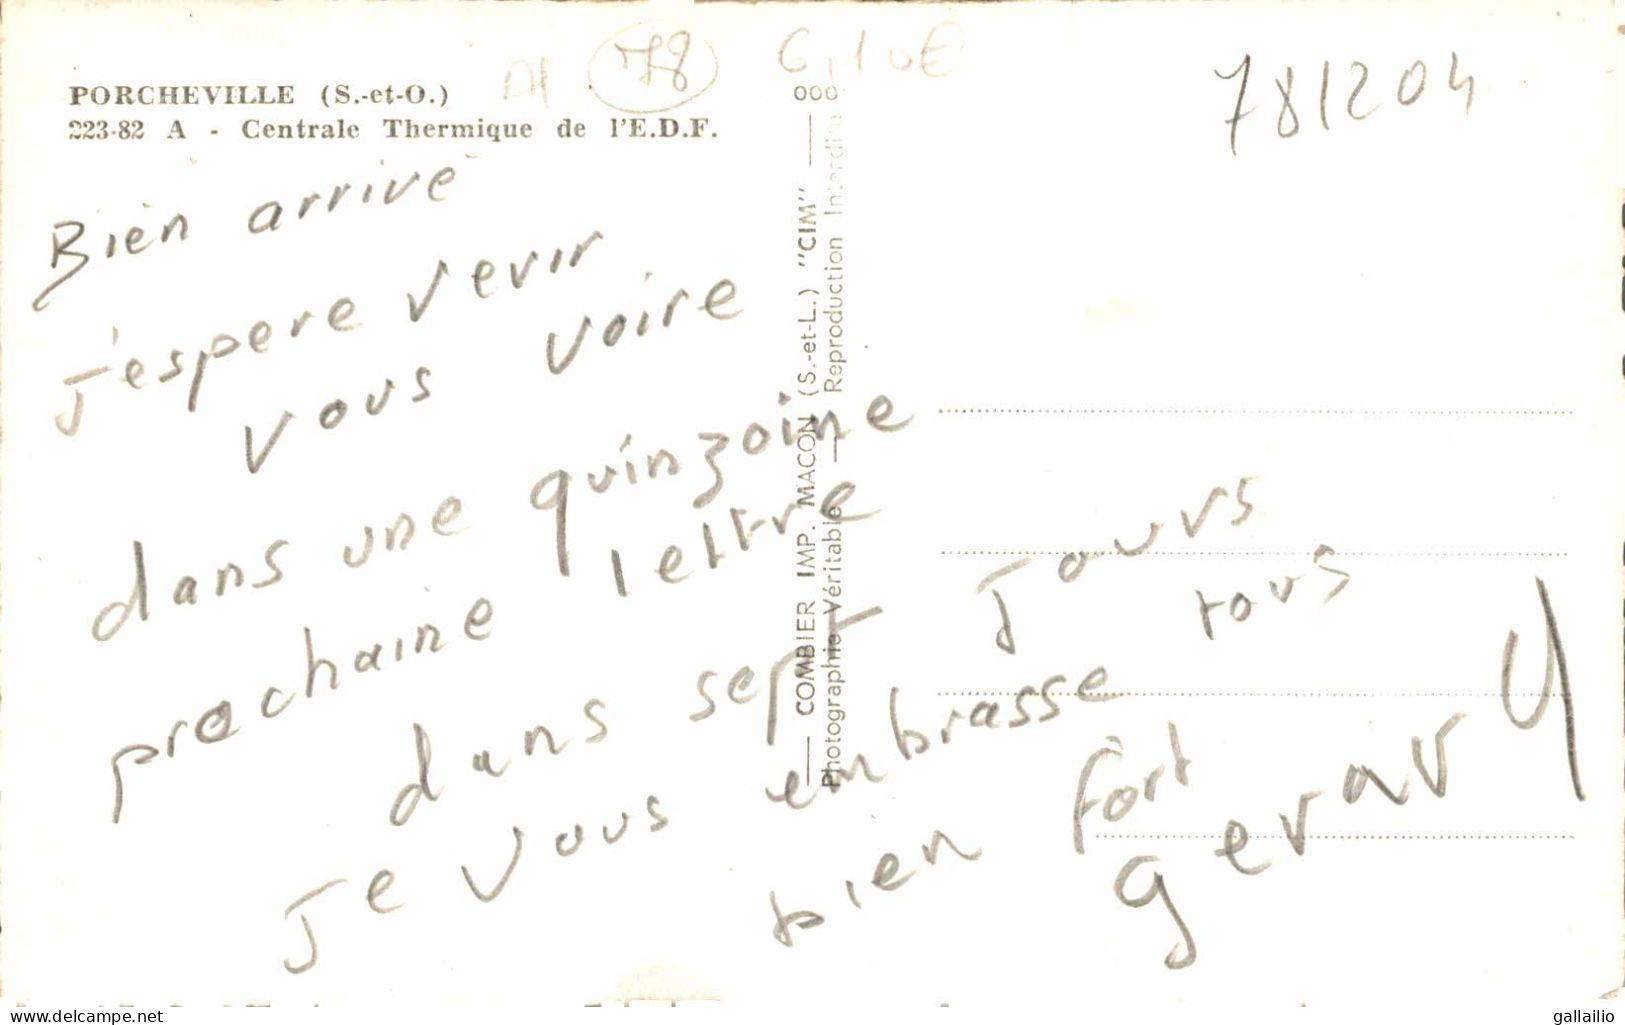 PORCHEVILLE (S.-et-O.)
223-82 A - Centrale Thermique de l'E.D.F.
78
6,10€
781204
000
COMBIER IMP. MACON (S.-et-L.) "CIM"
Photographie Véritable — Reproduction Interdite
Bien arrivé
J'espere vevir
vous voire
dans une quinzaine
prochaine lettre
dans sept Jours
Je vous embrasse tous
bien fort
gallailio
www.delcampe.net